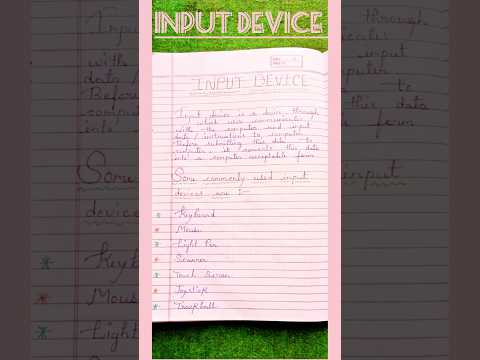 INPUT DEVICE
INPUT DEVICE
Input device is a device through
which user communicates
with the computer and input
data / instructions to computer.
Before submitting this data to
computer it converts this data
into a computer acceptable form
Some commonly used input
devices are :-
* Keyboard
* Mouse
* Light Pen
* Scanner
* Touch Screen
* Joystick
* Trackball